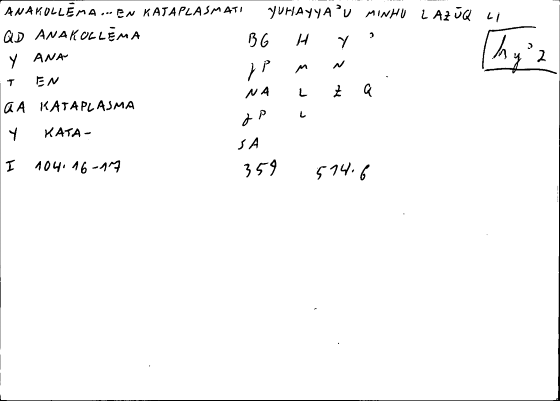 ANAKOLLĒMA...EN KATAPLASMATI YUHAYYAʾU MINHU LAZŪQ LI
QD ANAKOLLĒMA BG H Y ʾ
Y ANA P M N
T EN NA L Z Q
QA KATAPLASMA P L
Y KATA- SA
I 104.16-17 359 514.6
hyʾ2